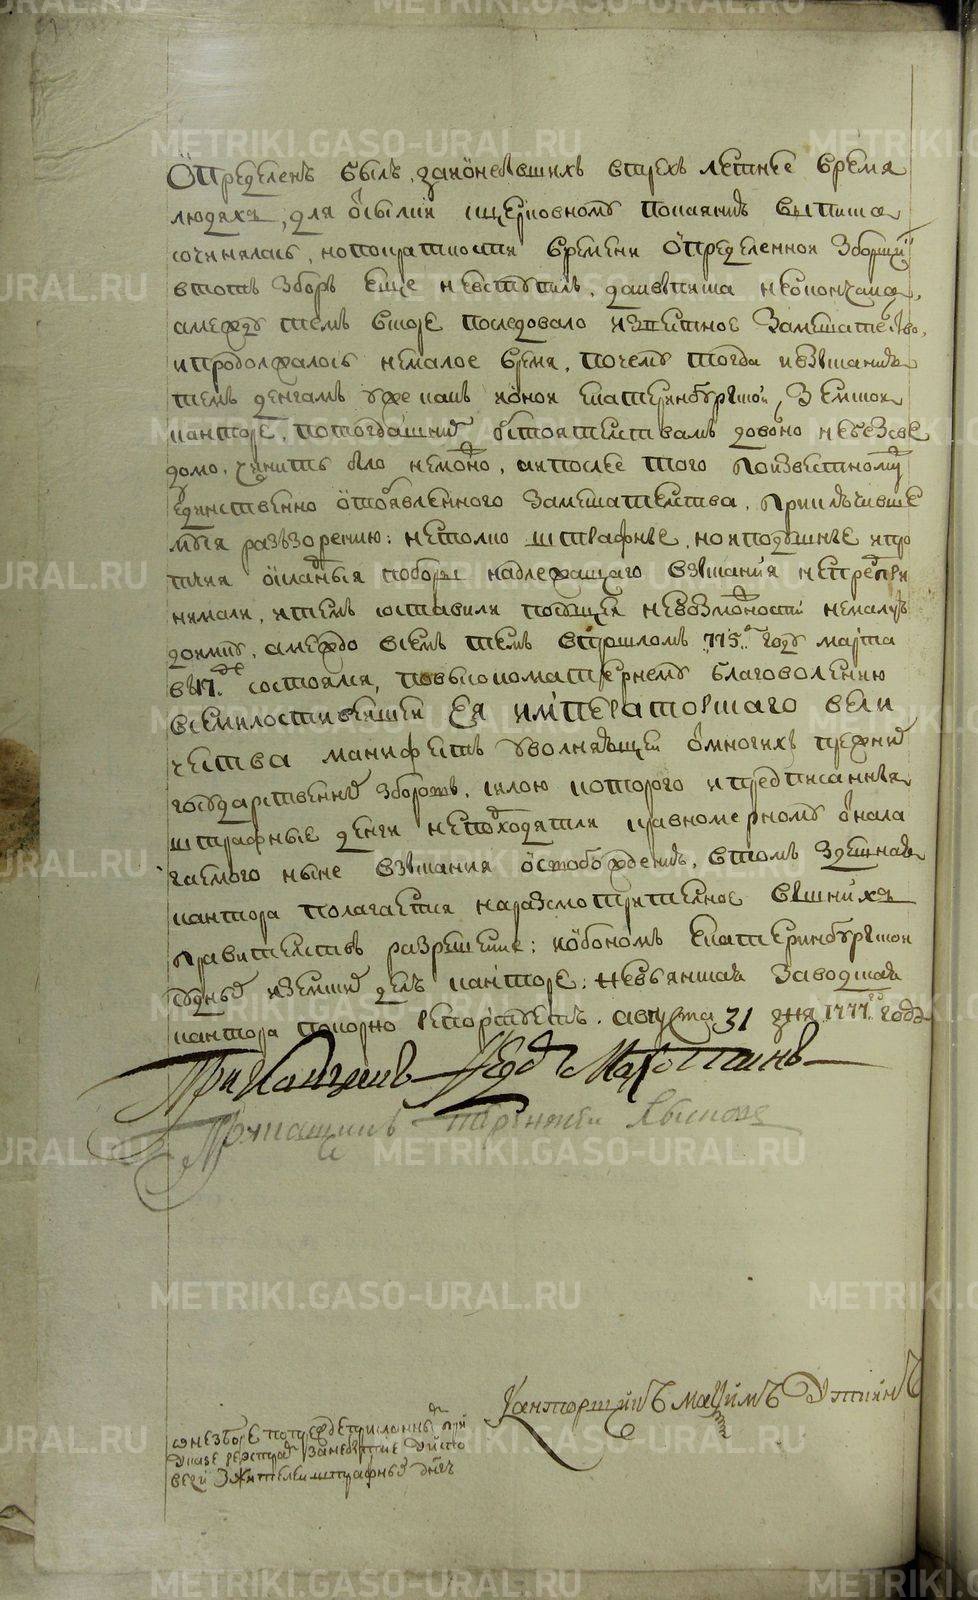 определенъ былъ, занебывшихъ втрехъ летнее время
людяхъ, для отсылки щерковному покаянию выписка
сочинялась, нопократкости времени определенной зборщикъ
втотъ зборъ еще невступилъ, да ивыписка неокончана,
амежду темъ вскоре последовало известное замешательство,
ипродолжалось немалое время, почему тогда и взысканиемъ
темъ денгамъ ужe какъ и оной екатеринбургской земской
канторе, потогдашнимъ обстоятелствамъ довольно небезъизве
домо, чинить было неможно, ипосле того поизвестному
единственно отоявленного замешателства, приключивше
муся раззорению: нетолко штрафные, но иподушные ипро
тчия окладныя поборы надлежащаго взыскания непрепри
нимали, итемъ оставили пообщей невозможности немалую
доимку, амеждо всемъ темъ впрошломъ 775.м году марта
въ 17.де состоялся, повысокоматернему благоволению
всемилостивейшей ея императорскаго вели
чества манифестъ уволняющей отмногихъ прежнихъ
государственныхъ зборовъ, силою которого ипредписанныя
штрафные денги неподходятли кравномерному отнала
гаемого ныне взыскания освобождению, втомъ здешная
кантора полагается наразсмотрителное вышнихъ
правителствъ разрешение; и обономъ екатеринбургской
судныхъ иземскихъ делъ канторе, невьянская заводская
кантора покорно репортуетъ. августа 31 дня 1777.го года
Прикащикъ Федоръ Махотинъ
Канторщикъ Максимъ
онезборе попреждеприсланнымъ при
указе реэстрамъ занебытие уиспо
веди зжителей штрафныхъ денгъ
METRIKI.GASO-URAL.RU